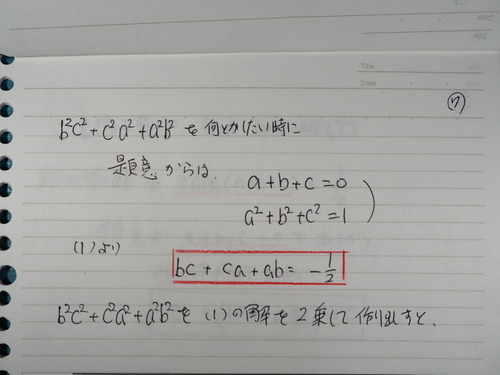 Title
Date
(7)
b²c²+c²a²+a²b² を 何とかしたい時に
題意からは、
a+b+c=0
a²+b²+c²=1
(1)より
bc+ca+ab=-1/2
b²c²+c²a²+a²b²を (1)の解を2乗して作り出すと、